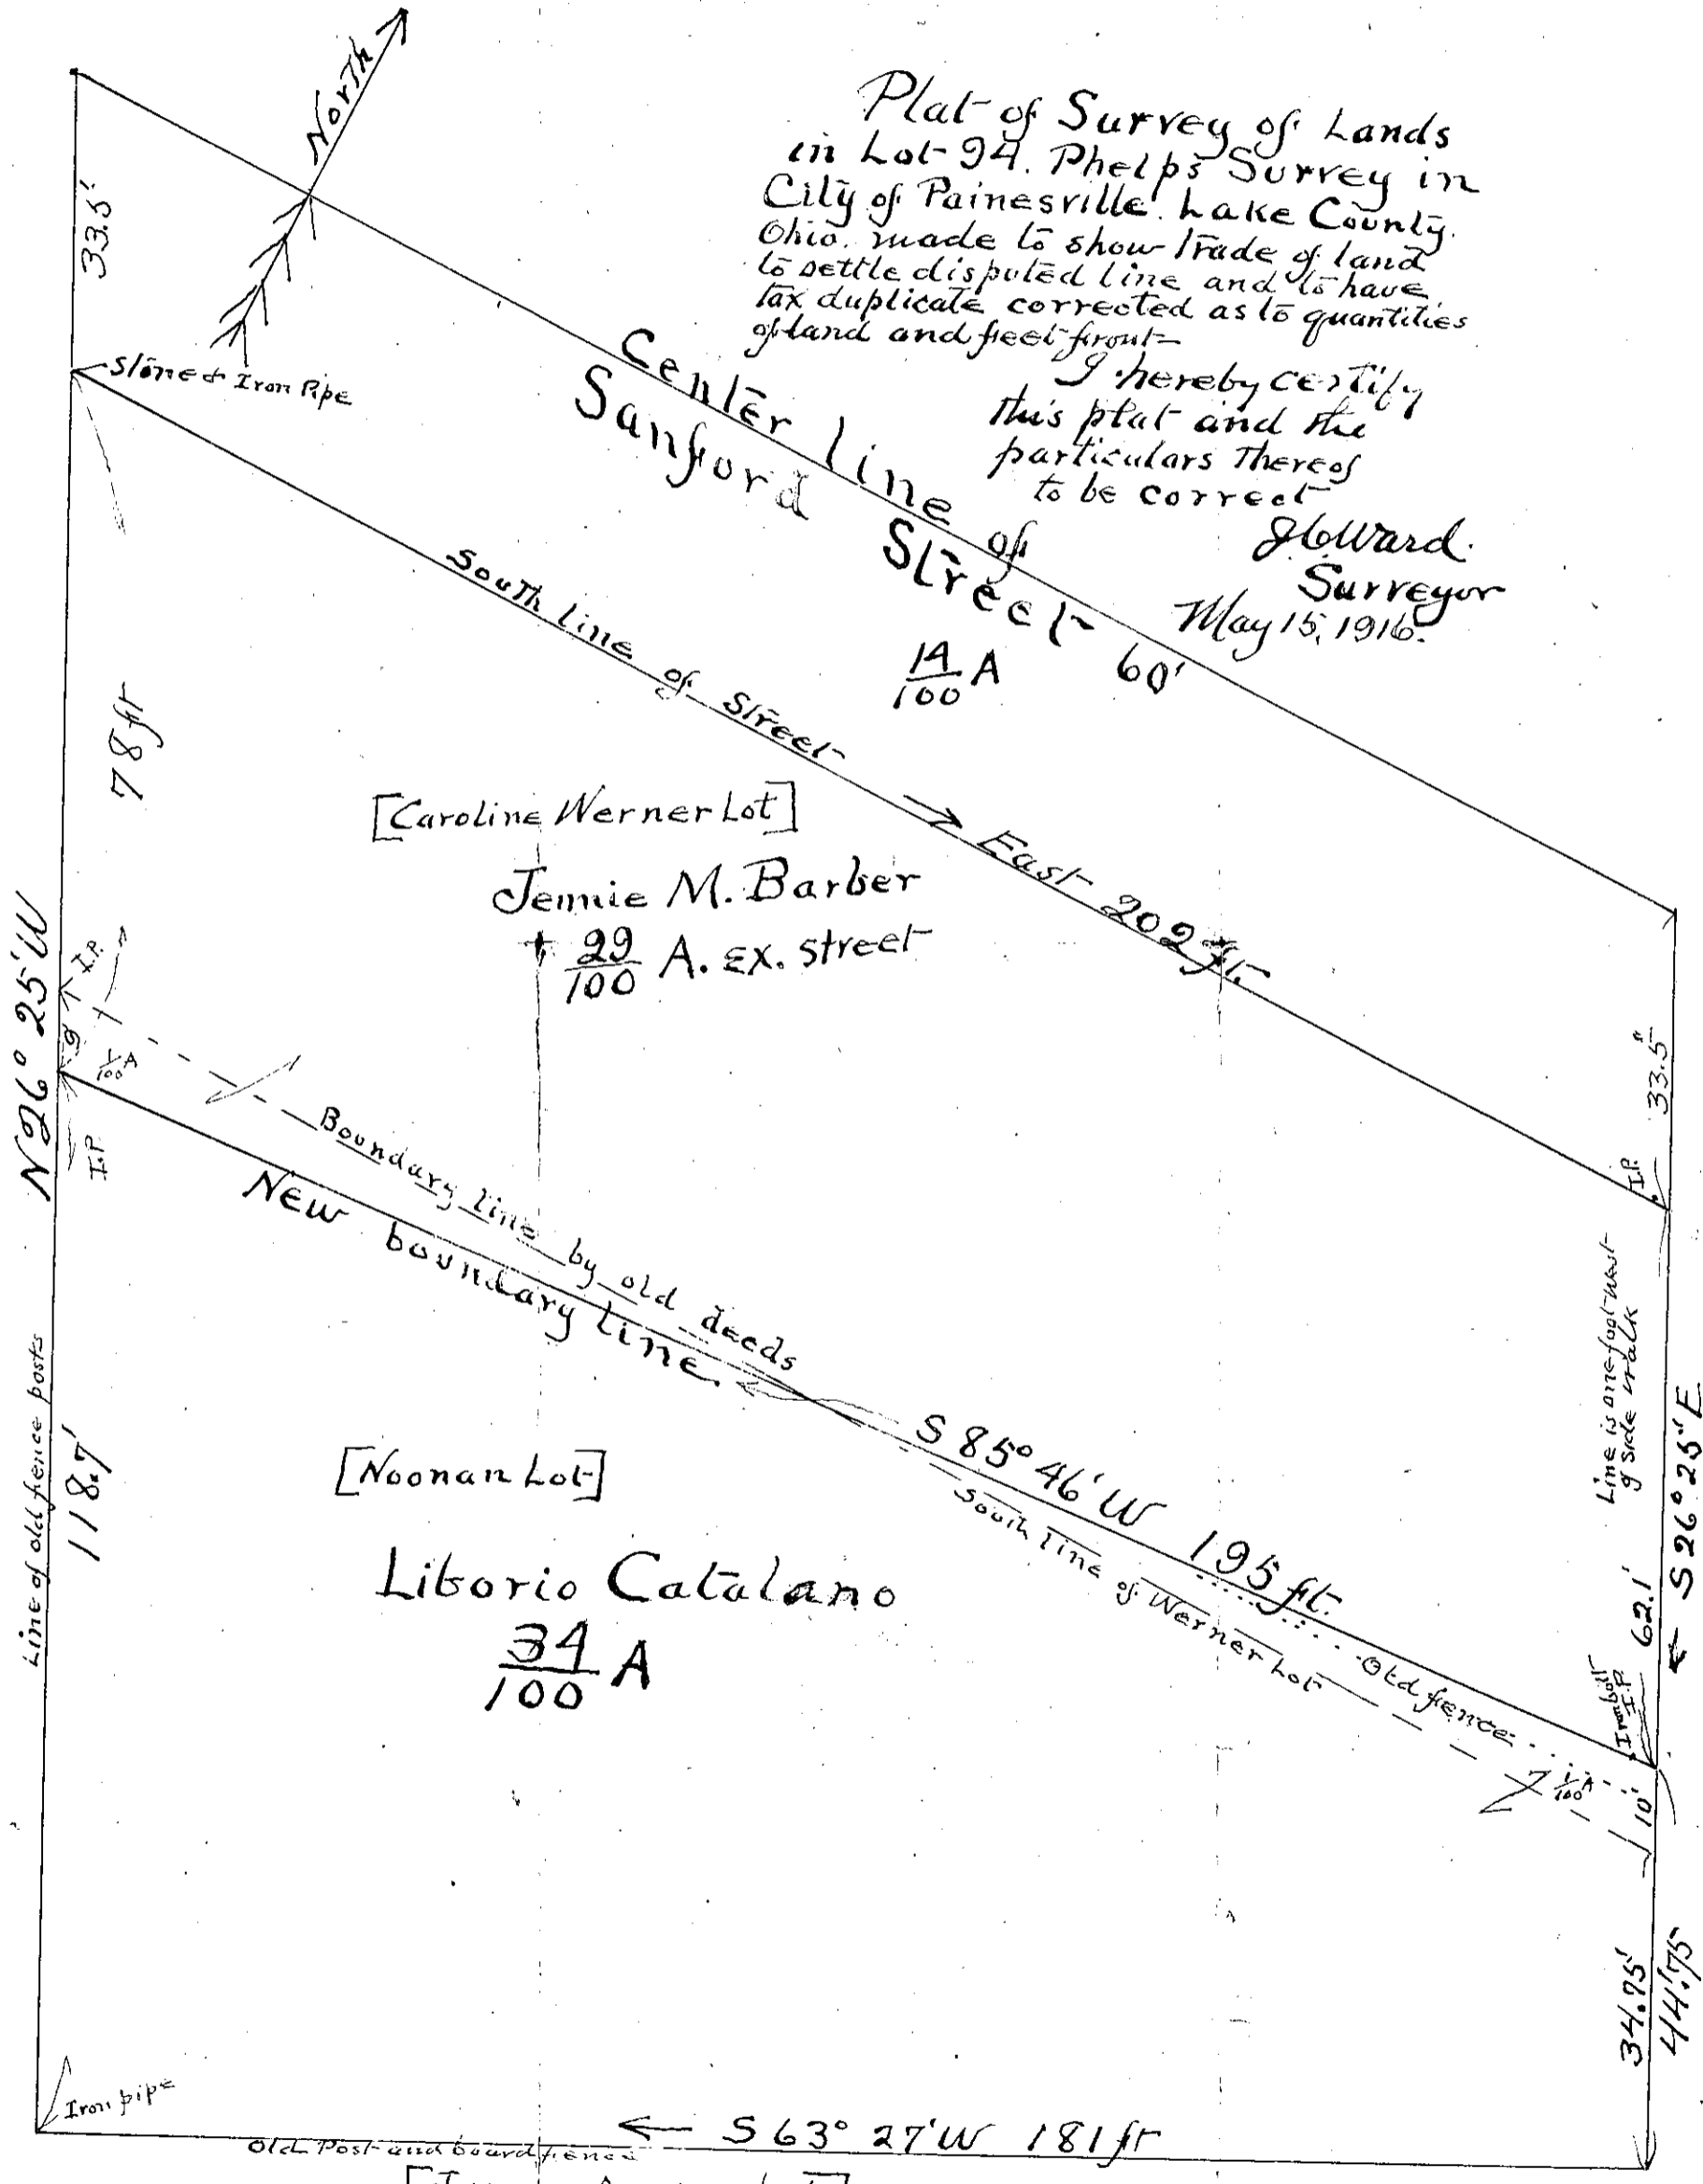 Plat of Survey of Lands
in Lot 94. Phelps Survey in
City of Painesville. Lake County.
Ohio. made to show trade of land
to settle disputed line and to have
tax duplicate corrected as to quantities
of land and feet front
I hereby certify
this plat and the
particulars thereof
to be correct
Ward.
Surveyor
May 15, 1916.
North
33.5'
Stone & Iron Pipe
Center line of
Sanford Street 60'
14/100 A
South line of Street → East 202 ft.
78 ft
[Caroline Werner Lot]
Jennie M. Barber
+ 29/100 A. Ex. street
N 26° 25' W
I.P.
9'
1/100 A
I.P.
33.5'
I.P.
Boundary line by old deeds
New boundary line.
S 85° 46' W 195 ft.
South line of Werner Lot
Old fence
Line is one foot West
of side walk
← S 26° 25' E
62.1'
Iron bolt
I.P.
1/100 A
10'
Line of old fence posts
118.7'
[Noonan Lot]
Liborio Catalano
34/100 A
34.75'
44.75
Iron pipe
← S 63° 27' W 181 ft
Old Post and board fence